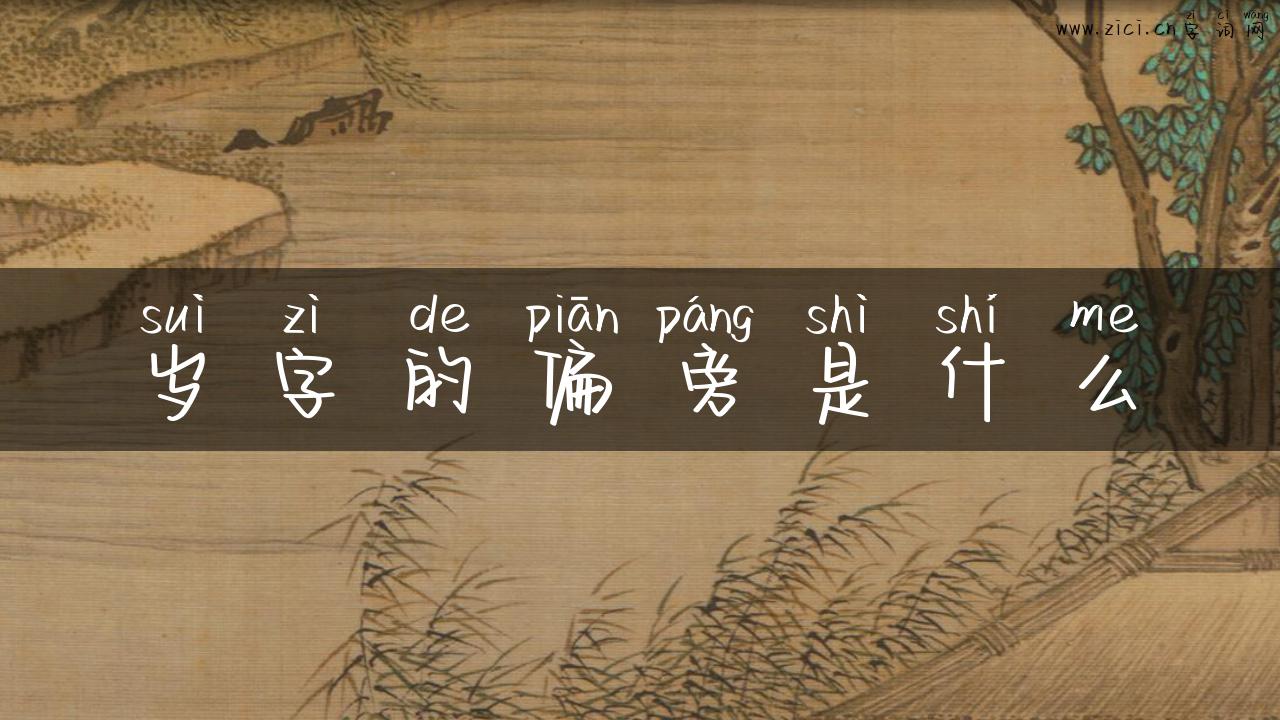 zì cí wǎng
www.zici.cn字词网
suì zì de piān páng shì shí me
岁字的偏旁是什么